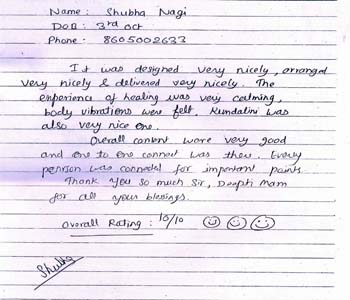 Name : Shubha Nagi
DOB : 3rd oct
Phone : 8605002633
It was designed very nicely, arranged
very nicely & delivered very nicely. The
experience of healing was very calming,
body vibrations were felt. Kundalini was
also very nice one.
Overall content were very good
and one to one connect was there. Every
person was connected for important points.
Thank you so much Sir, Deepti Mam
for all your blessings.
Overall Rating : 10/10
Shubha